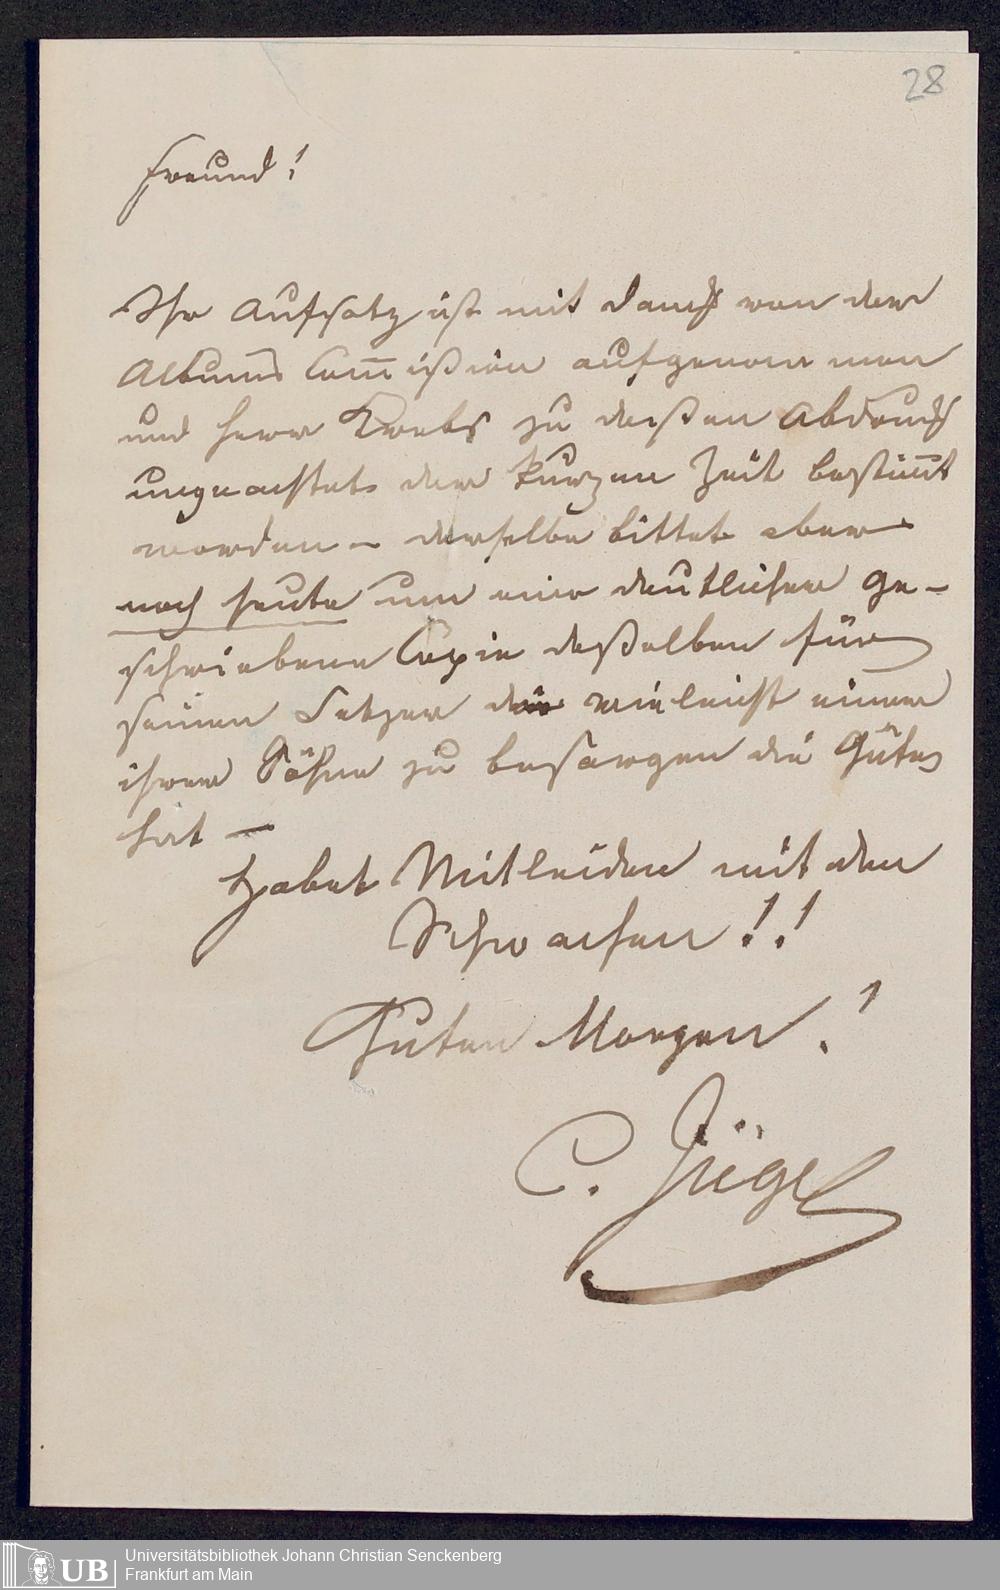 28
Freund!
Ihr Aufsatz ist mit Dank von der
Albums Com̅ißion aufgenom̅en
und Herr Krebs zu deßen Abdruck
ungeachtet der kurzen Zeit bestim̅t
worden – derselbe bittet aber
noch heute um eine deutlicher ge-
schriebene Copie deßelben für
seinen Setzer die vieleicht einer
ihrer Söhne zu besorgen die Güte
hat —
Habet Mitleiden mit den
Schwachen!!
Guten Morgen!
C. Jügel
UB
Universitätsbibliothek Johann Christian Senckenberg
Frankfurt am Main